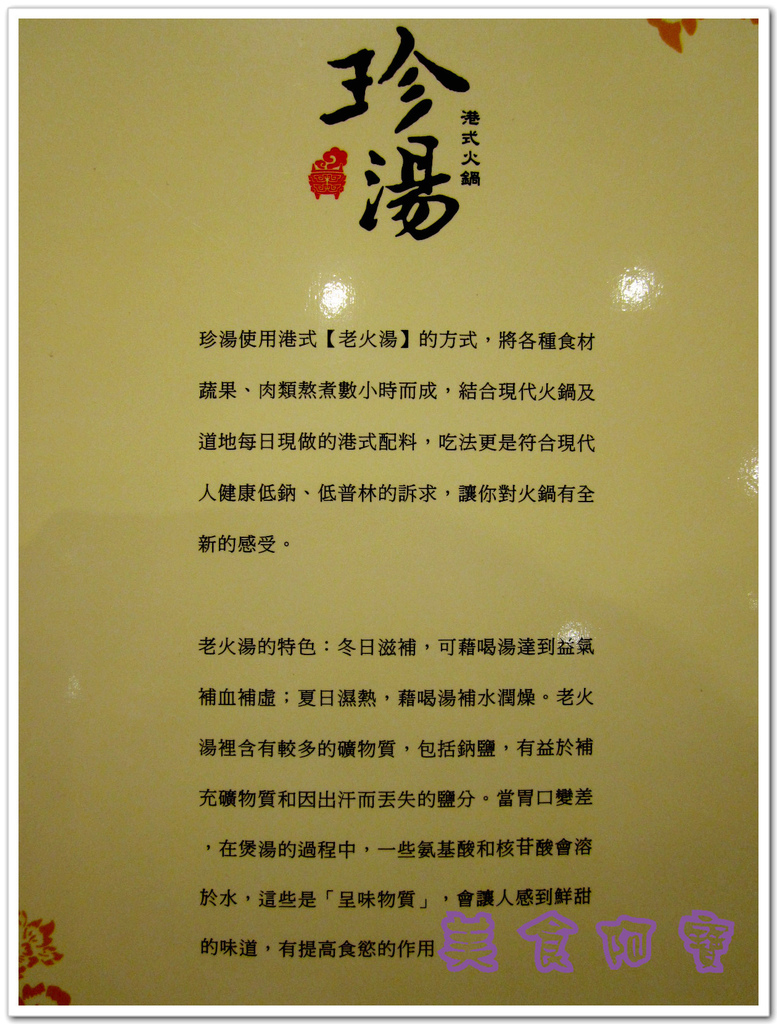 珍湯
港式火鍋
珍湯使用港式【老火湯】的方式，將各種食材
蔬果、肉類熬煮數小時而成，結合現代火鍋及
道地每日現做的港式配料，吃法更是符合現代
人健康低鈉、低普林的訴求，讓你對火鍋有全
新的感受。
老火湯的特色：冬日滋補，可藉喝湯達到益氣
補血補虛；夏日濕熱，藉喝湯補水潤燥。老火
湯裡含有較多的礦物質，包括鈉鹽，有益於補
充礦物質和因出汗而丟失的鹽分。當胃口變差
，在煲湯的過程中，一些氨基酸和核苷酸會溶
於水，這些是「呈味物質」，會讓人感到鮮甜
的味道，有提高食慾的作用
美食向寶